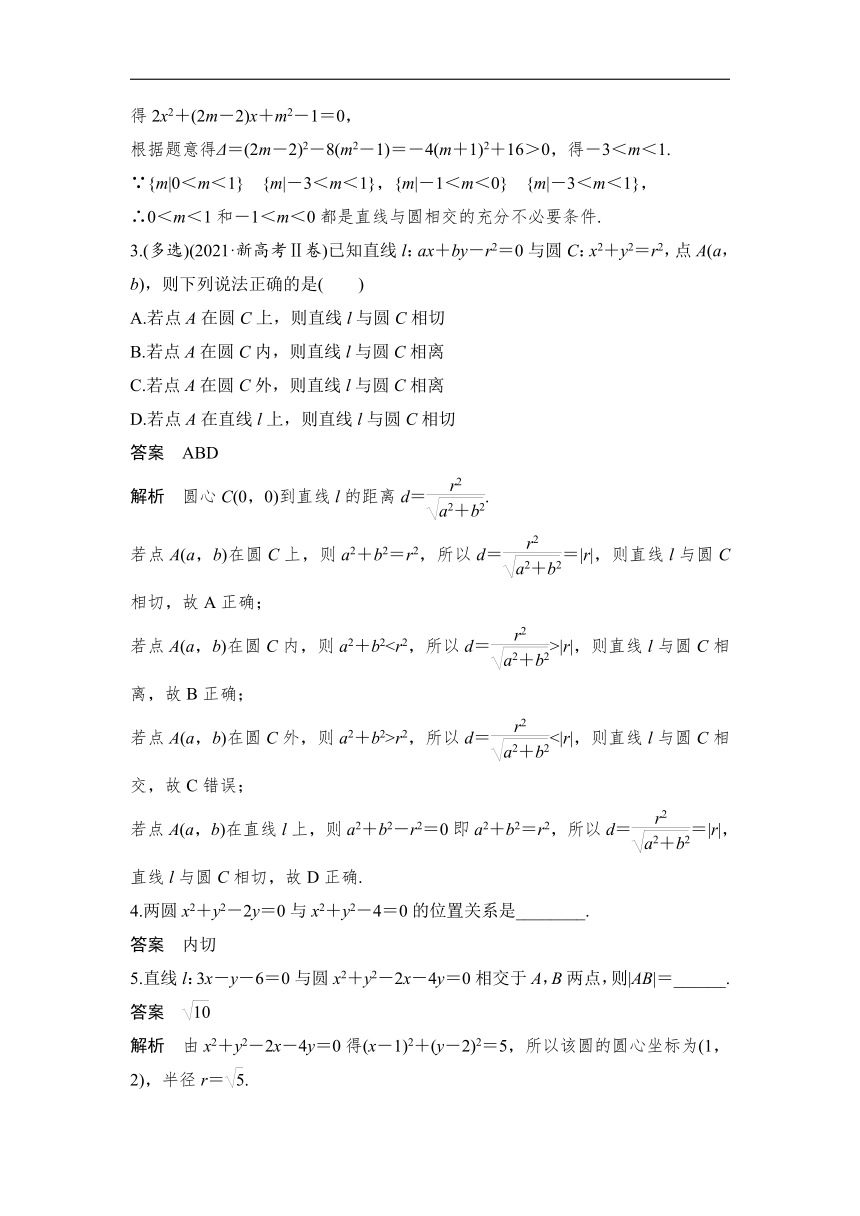 得2x²+(2m-2)x+m²-1=0,
根据题意得Δ=(2m-2)²-8(m²-1)=-4(m+1)²+16>0,得-3<m<1.
∵{m|0<m<1} {m|-3<m<1},{m|-1<m<0} {m|-3<m<1},
∴0<m<1和-1<m<0都是直线与圆相交的充分不必要条件.
3.(多选)(2021·新高考Ⅱ卷)已知直线l:ax+by-r²=0与圆C:x²+y²=r²,点A(a,
b),则下列说法正确的是(  )
A.若点A在圆C上,则直线l与圆C相切
B.若点A在圆C内,则直线l与圆C相离
C.若点A在圆C外,则直线l与圆C相离
D.若点A在直线l上,则直线l与圆C相切
答案 ABD
解析 圆心C(0,0)到直线l的距离d=r²/√(a²+b²).
若点A(a,b)在圆C上,则a²+b²=r²,所以d=r²/√(a²+b²)=|r|,则直线l与圆C
相切,故A正确;
若点A(a,b)在圆C内,则a²+b²<r²,所以d=r²/√(a²+b²)>|r|,则直线l与圆C相
离,故B正确;
若点A(a,b)在圆C外,则a²+b²>r²,所以d=r²/√(a²+b²)<|r|,则直线l与圆C相
交,故C错误;
若点A(a,b)在直线l上,则a²+b²-r²=0即a²+b²=r²,所以d=r²/√(a²+b²)=|r|,
直线l与圆C相切,故D正确.
4.两圆x²+y²-2y=0与x²+y²-4=0的位置关系是________.
答案 内切
5.直线l:3x-y-6=0与圆x²+y²-2x-4y=0相交于A,B两点,则|AB|=______.
答案 √10
解析 由x²+y²-2x-4y=0得(x-1)²+(y-2)²=5,所以该圆的圆心坐标为(1,
2),半径r=√5.